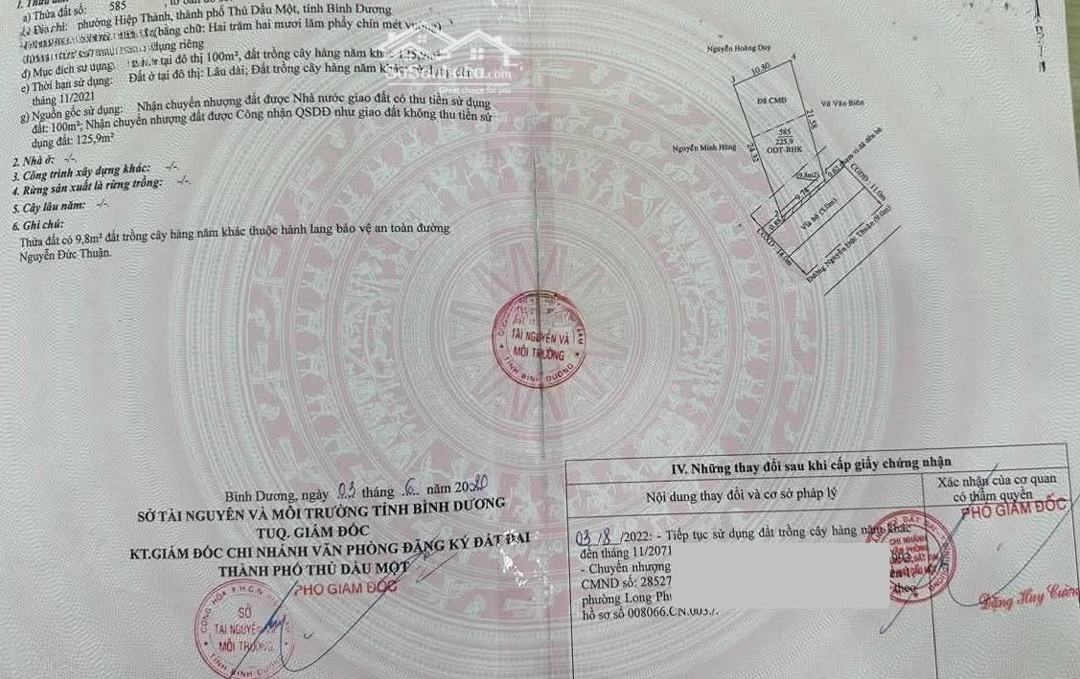 1. Thửa đất:
a) Thửa đất số: 585
phường Hiệp Thành, thành phố Thủ Dầu Một, tỉnh Bình Dương
(bằng chữ: Hai trăm hai mươi lăm phẩy chín mét vuông)
dụng riêng
đ) Mục đích sử dụng: tại đô thị 100m², đất trồng cây hàng năm khác 125,9m²
e) Thời hạn sử dụng: Đất ở tại đô thị: Lâu dài; Đất trồng cây hàng năm khác: sử dụng đến
tháng 11/2021
g) Nguồn gốc sử dụng: Nhận chuyển nhượng đất được Nhà nước giao đất có thu tiền sử dụng
đất: 100m²; Nhận chuyển nhượng đất được Công nhận QSDĐ như giao đất không thu tiền sử
dụng đất: 125,9m²
2. Nhà ở: -/-
3. Công trình xây dựng khác: -/-
4. Rừng sản xuất là rừng trồng: -/-
5. Cây lâu năm: -/-
6. Ghi chú:
Thửa đất có 9,8m² đất trồng cây hàng năm khác thuộc hành lang bảo vệ an toàn đường
Nguyễn Đức Thuận.
Great choice for you
Nguyễn Hoàng Duy
3
10.80
4
Đã CMĐ
Vũ Văn Biên
21.58
585
225,9
ODT-BHK
Nguyễn Minh Hùng
24.32
(9,8m2)
9.78
0.88
2
CGDĐ-11.0m
Vỉa hè (5.0m)
Đường Nguyễn Đức Thuận (9.0m)
TÀI NGUYÊN VÀ
MÔI TRƯỜNG
TỈNH BÌNH DƯƠNG
Bình Dương, ngày 03 tháng 6 năm 2020
SỞ TÀI NGUYÊN VÀ MÔI TRƯỜNG TỈNH BÌNH DƯƠNG
TUQ. GIÁM ĐỐC
KT.GIÁM ĐỐC CHI NHÁNH VĂN PHÒNG ĐĂNG KÝ ĐẤT ĐAI
THÀNH PHỐ THỦ DẦU MỘT
PHÓ GIÁM ĐỐC
SỞ
TÀI NGUYÊN
MÔI TRƯỜNG
TỈNH BÌNH DƯƠNG
IV. Những thay đổi sau khi cấp giấy chứng nhận
Nội dung thay đổi và cơ sở pháp lý
Xác nhận của cơ quan
có thẩm quyền
PHÓ GIÁM ĐỐC
03/8/2022: - Tiếp tục sử dụng đất trồng cây hàng năm khác
đến tháng 11/2071
- Chuyển nhượng
CMND số: 28527
phường Long
theo
hồ sơ số 008066.CN.003
CHI NHÁNH
VĂN PHÒNG
Đặng Huy Cường